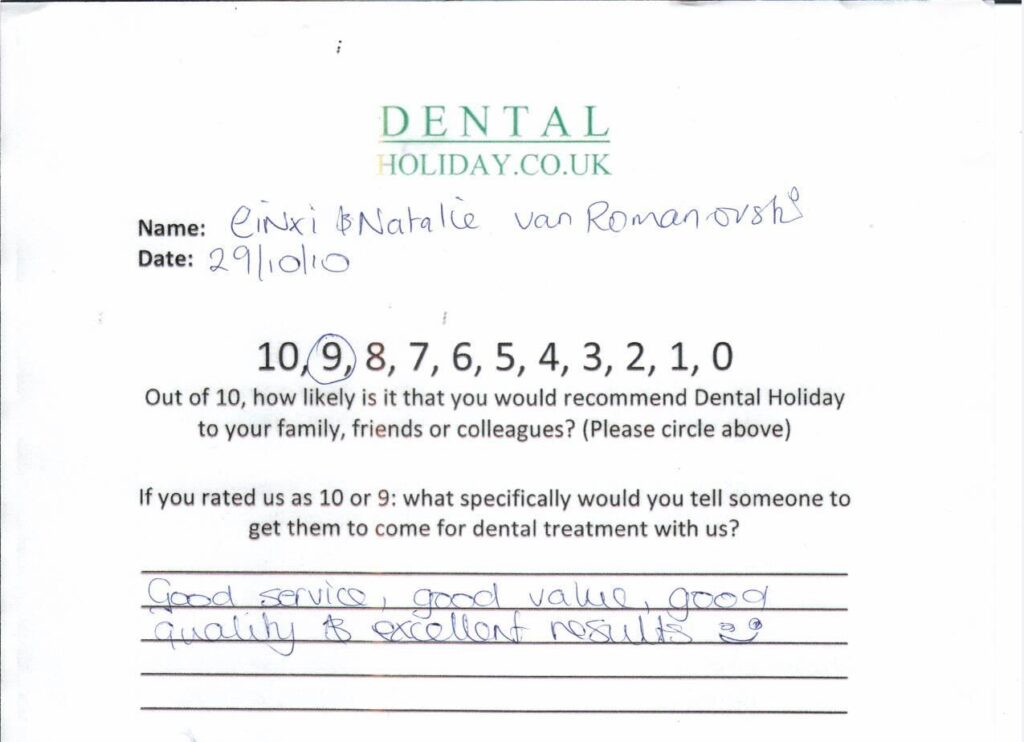 DENTAL
HOLIDAY.CO.UK
Name: & Natalie van Romanovski
Date: 29/10/10
10, 9, 8, 7, 6, 5, 4, 3, 2, 1, 0
Out of 10, how likely is it that you would recommend Dental Holiday
to your family, friends or colleagues? (Please circle above)
If you rated us as 10 or 9: what specifically would you tell someone to
get them to come for dental treatment with us?
Good service, good value, good
quality & excellent results